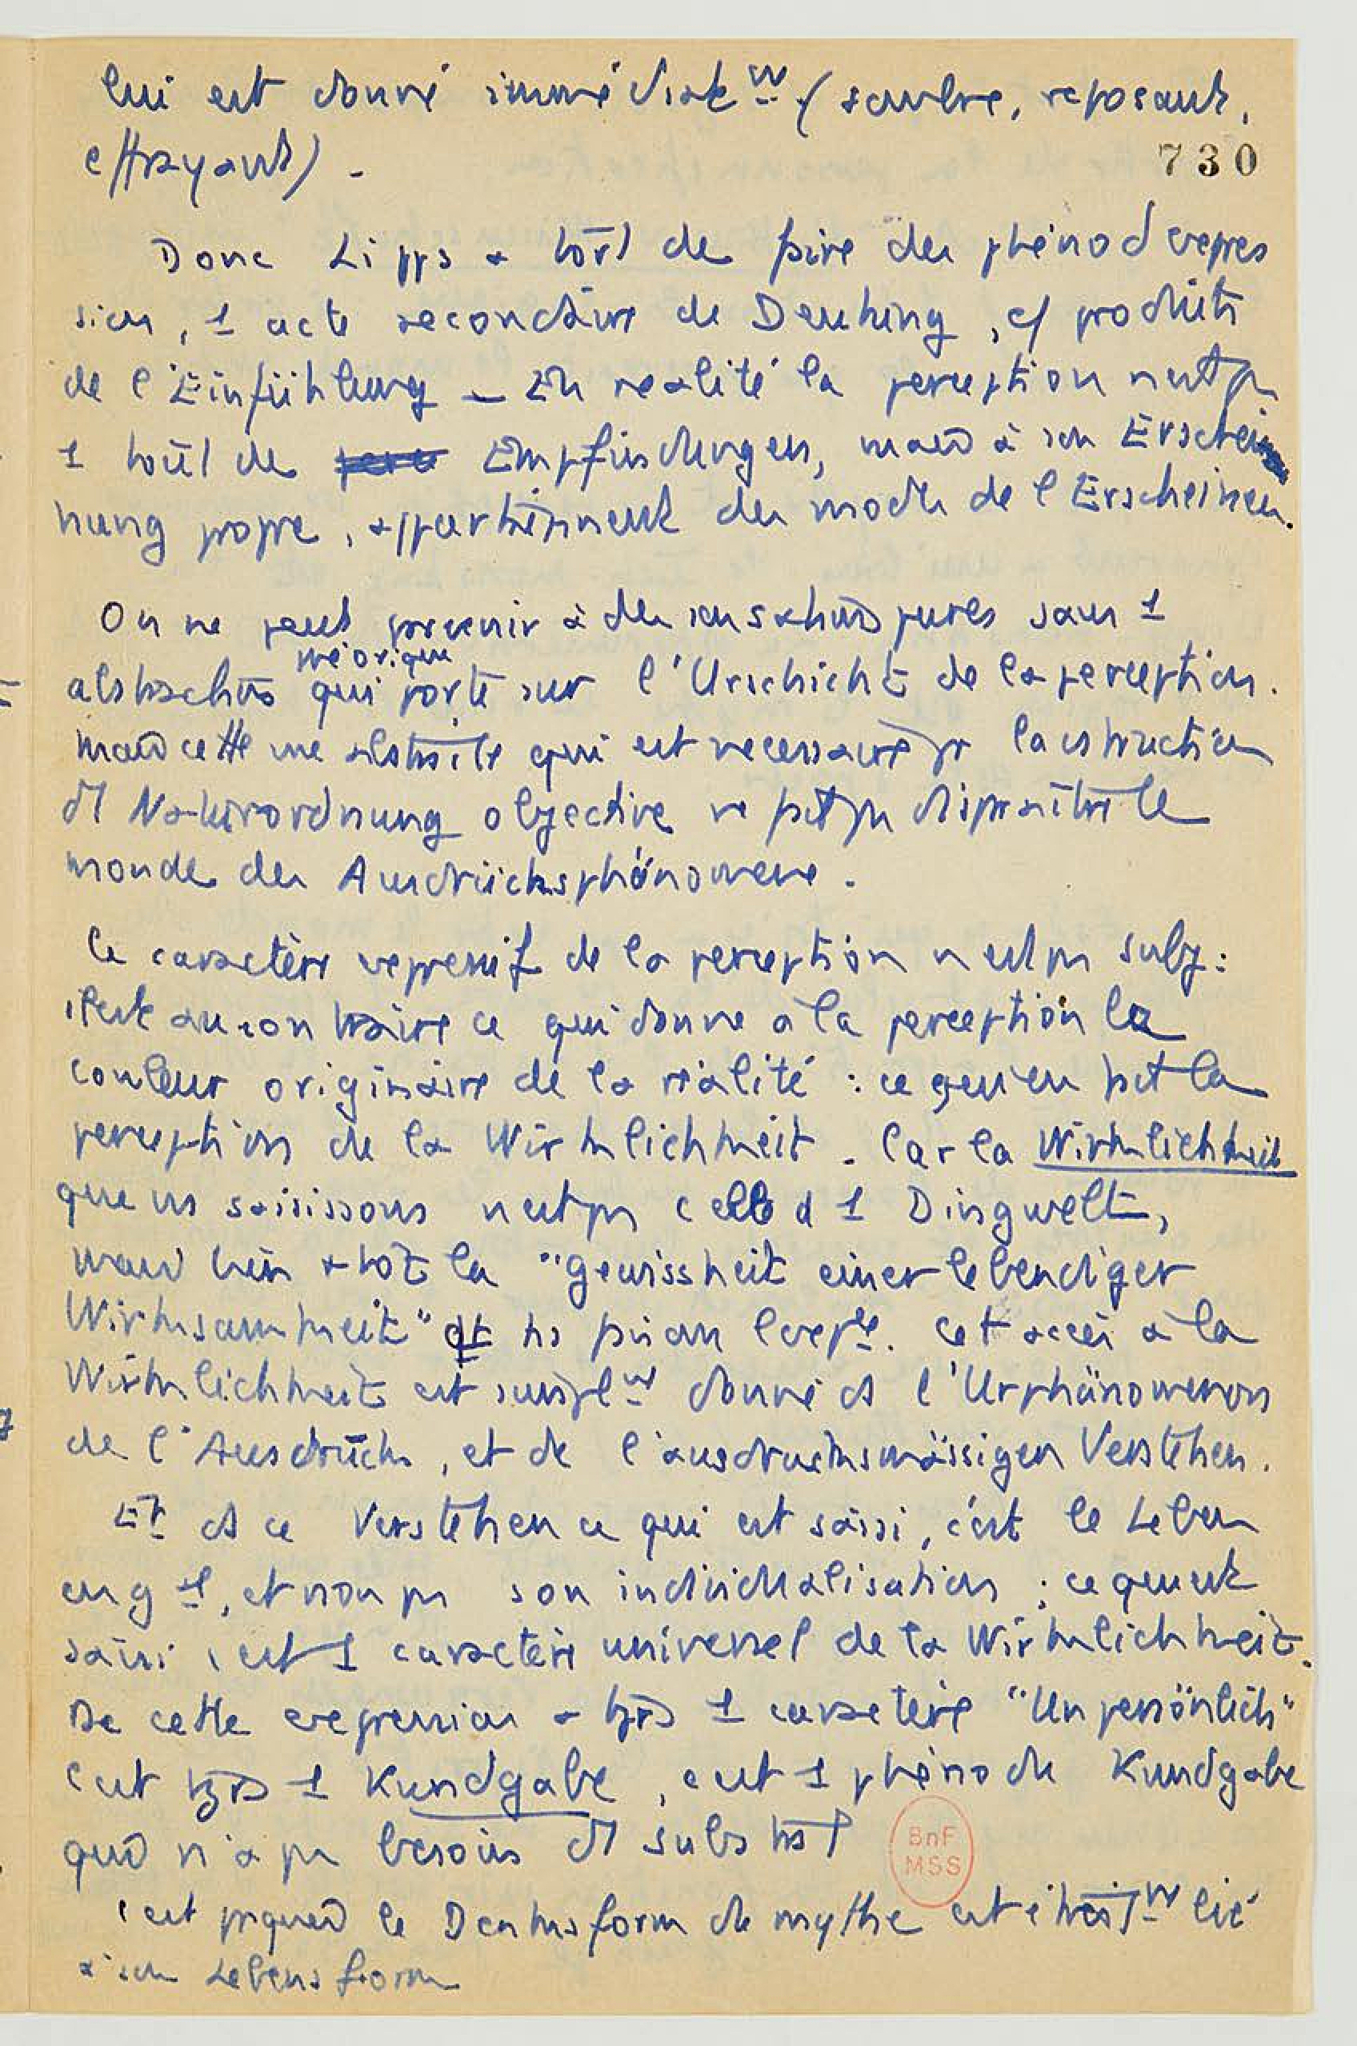 lui est donné immédiatemt (sombre, reposant,
effrayant) -
730
Donc Lipps a tort de faire des phéno d'expres
sion, 1 acte secondaire de Deutung, c/ produits
de l'Einfühlung - En réalité la perception n'est pas
1 tout de Empfindungen, mais à son Erschei
nung propre, appartiennent des modes de l'Erscheinen.
On ne peut parvenir à des sensations pures sans 1
abstraction théorique qui porte sur l'Urschicht de la perception.
mais cette me abstraite qui est nécessaire pr la cstruction
d'1 Naturordnung objective ne fait pas disparaître le
monde des Ausdrücksphänomene.
Le caractère expressif de la perception n'est pas subj:
il est au contraire ce qui donne à la perception la
couleur originaire de la réalité : ce qui en fait la
perception de la Wirklichkeit. Car la Wirklichkeit
que ns saisissons n'est pas celle d'1 Dingwelt,
mais bien + tôt la "Gewissheit einer lebendiger
Wirksamkeit" dt ns faisons l'expce. Cet accès à la
Wirklichkeit est simplmt donné ds l'Urphänomenon
de l'Ausdrück, et de l'ausdrucksmässigen Verstehen.
Et ds ce Verstehen ce qui est saisi, c'est le Leben
en gal, et non pas son individualisation ; ce qui est
saisi c'est 1 caractère universel de la Wirklichkeit.
De cette expression a tjrs 1 caractère "Unpersönlich"
c'est tjrs 1 Kundgabe, c'est 1 phéno de Kundgabe
qui n'a pas besoin d'1 substrat
BnF
MSS
c'est pquoi le Denkform du mythe est étroitmt lié
à son Lebensform